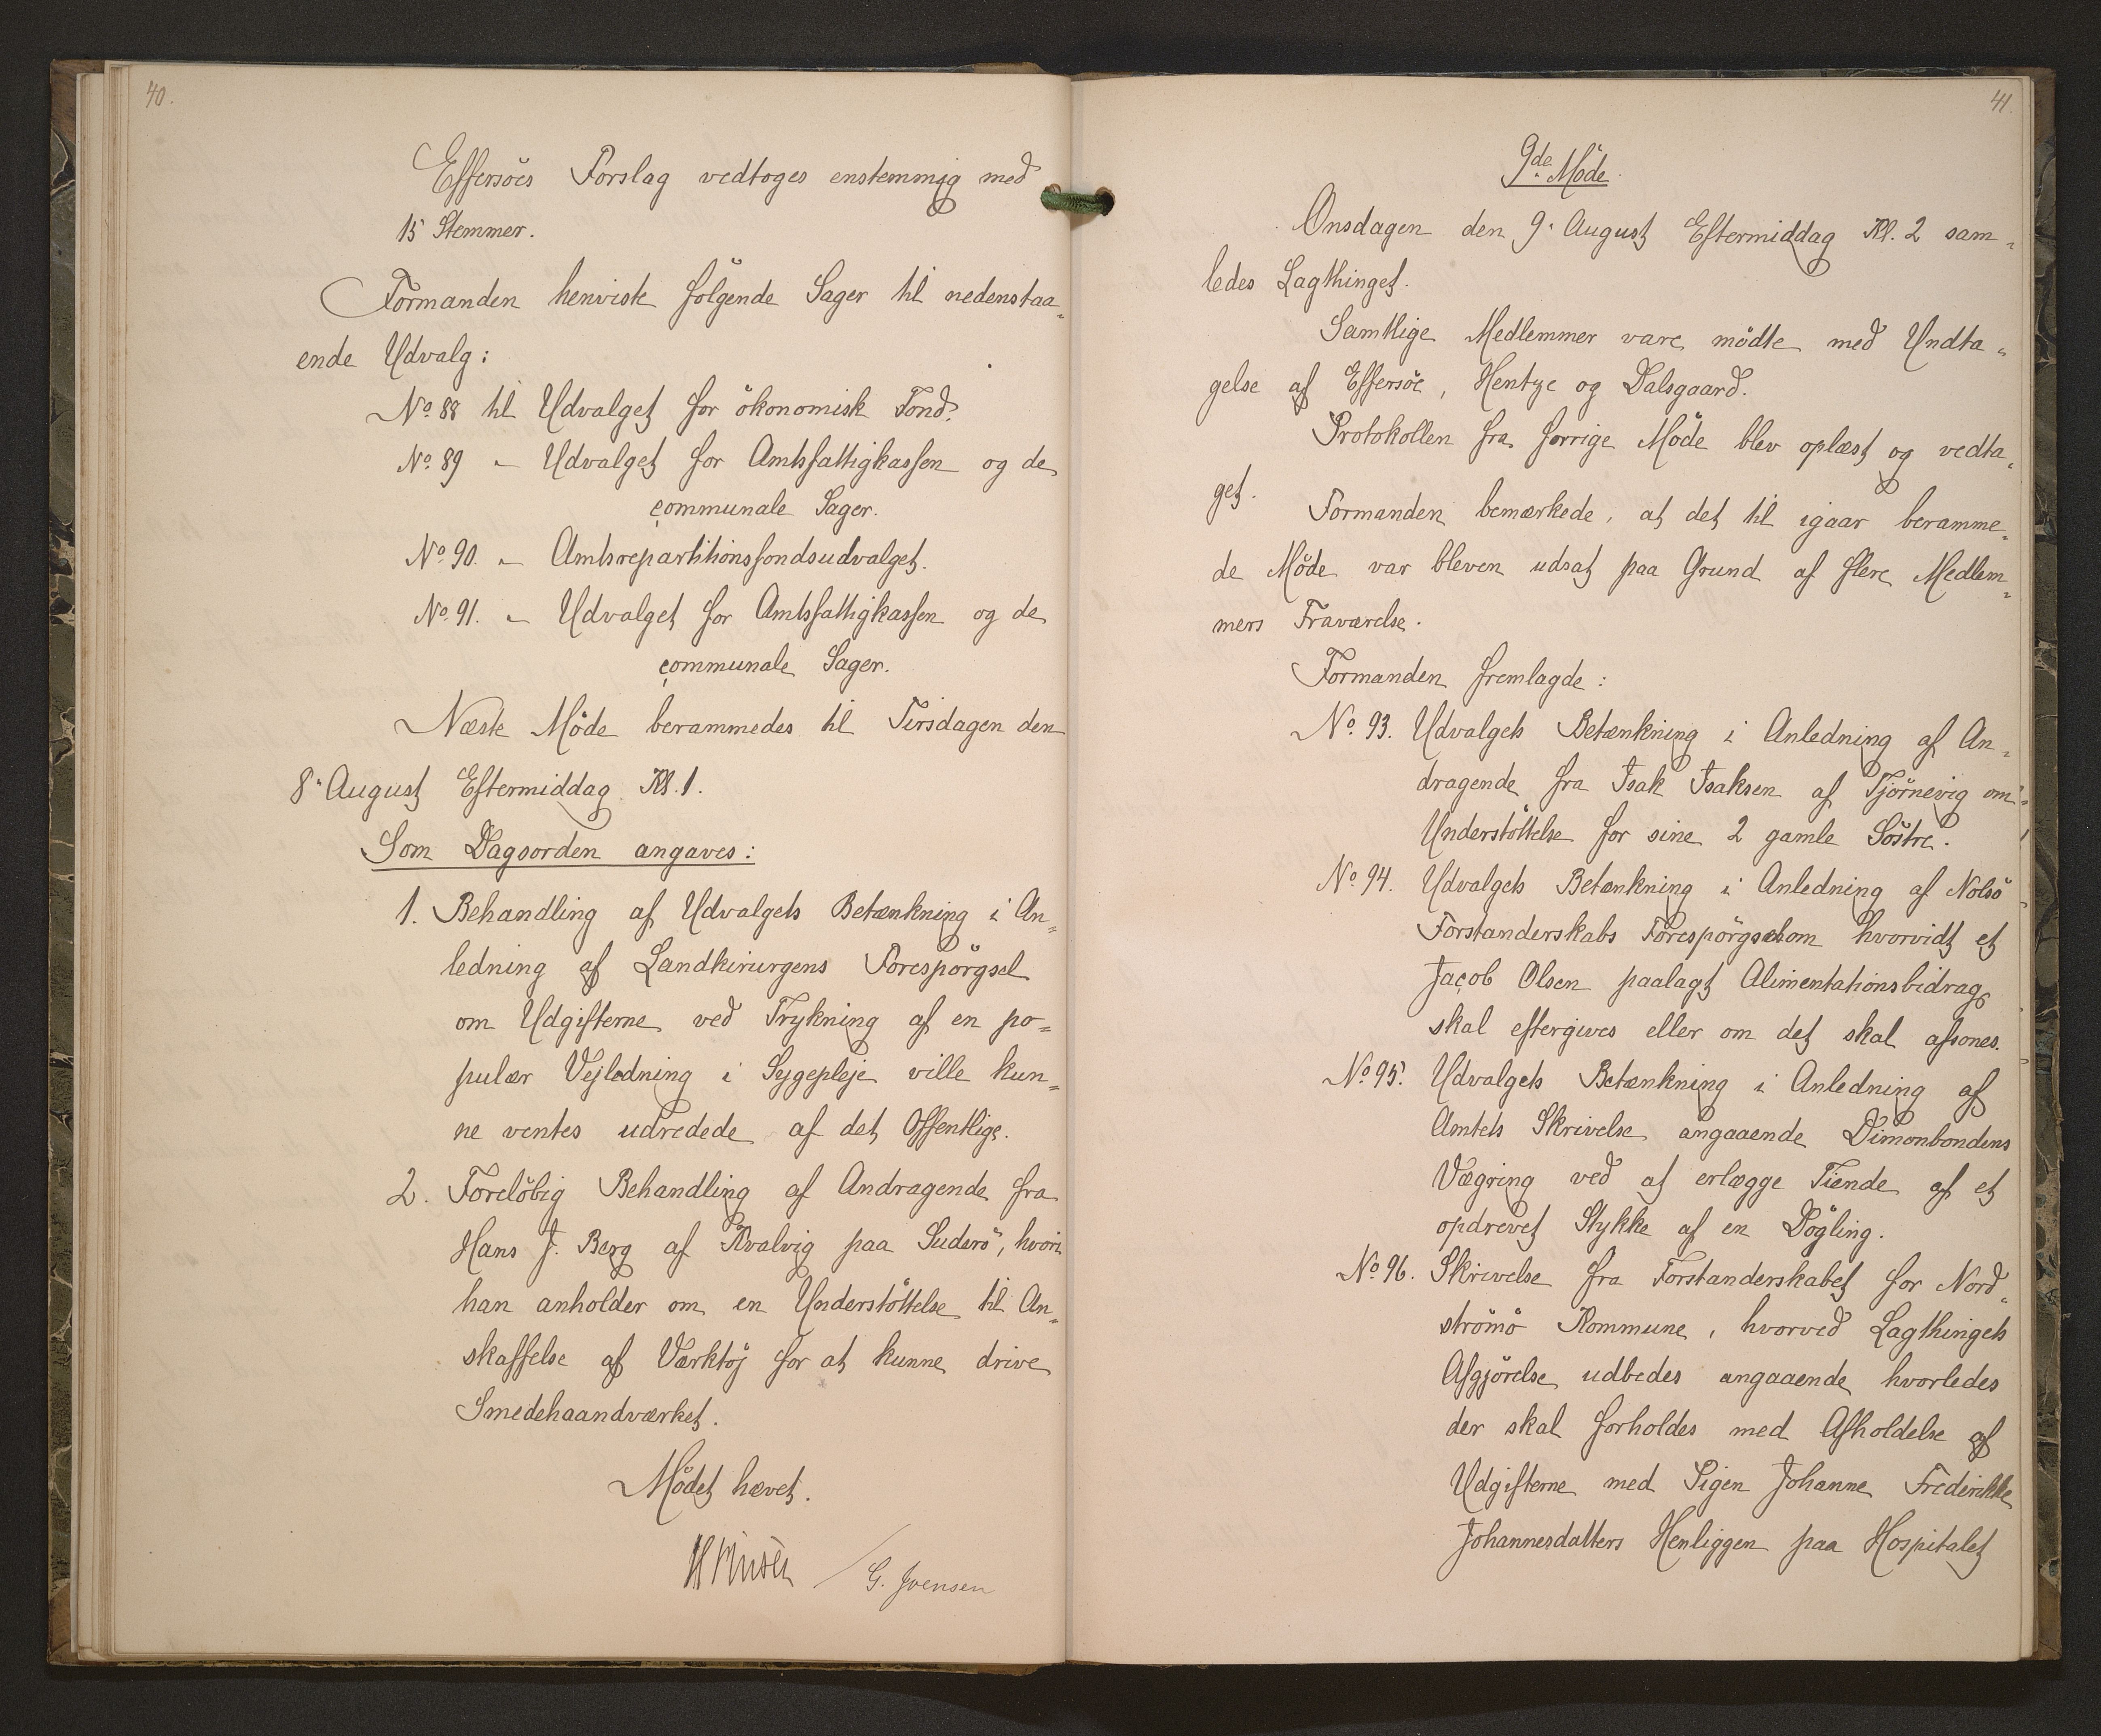 40.
Effersöes Forslag vedtoges enstemmig med
15 Stemmer.
Formanden henviste fölgende Sager til nedenstaa„
ende Udvalg:
No. 88 til Udvalget for ökonomisk Fond.
No. 89 „ Udvalget for Amtsfattigkassen og de
communale Sager.
No. 90. „ Amtsrepartitionsfondsudvalget.
No. 91. „ Udvalget for Amtsfattigkassen og de
communale Sager.
Næste Möde berammedes til Tirsdagen den
8. August Eftermiddag Kl. 1.
Som Dagsorden angaves:
1. Behandling af Udvalgets Betænkning i An„
ledning af Landkirurgens Forespörgsel
om Udgifterne ved Trykning af en po=
pulær Vejledning i Sygepleje ville kun„
ne ventes udredede af det Offentlige.
2. Forelöbig Behandling af Andragende fra
Hans J. Berg af Kvalvig paa Suderö, hvori
han anholder om en Understöttelse til An„
skaffelse af Værktöj for at kunne drive
Smedehaandværket.
Mödet hævet.
G. Jvensen
41.
9de Möde.
Onsdagen den 9. August Eftermiddag Kl. 2 sam„
ledes Lagthinget.
Samtlige Medlemmer vare mödte med Undta„
gelse af Effersöe, Hentze og Dalsgaard.
Protokollen fra forrige Möde blev oplæst og vedta„
get.
Formanden bemærkede, at det til igaar beramme„
de Möde var bleven udsat paa Grund af flere Medlem„
mers Fraværelse.
Formanden fremlagde:
No. 93. Udvalgets Betænkning i Anledning af An„
dragende fra Isak Isaksen af Tjörnevig om
Understöttelse for sine 2 gamle Söstre.
No. 94. Udvalgets Betænkning i Anledning af Nolsö
Forstanderskabs Forespörgsel om hvorvidt et
Jacob Olsen paalagt Alimentationsbidrag
skal eftergives eller om det skal afsones.
No. 95. Udvalgets Betænkning i Anledning af
Amtets Skrivelse angaaende Dimonbondens
Vægring ved at erlægge Tiende af et
opdrevet Stykke af en Dögling.
No. 96. Skrivelse fra Forstanderskabet for Nord„
strömö Kommune, hvorved Lagthingets
Afgjörelse udbedes angaaende hvorledes
der skal forholdes med Afholdelse af
Udgifterne med Pigen Johanne Frederikke
Johannesdatters Henliggen paa Hospitalet